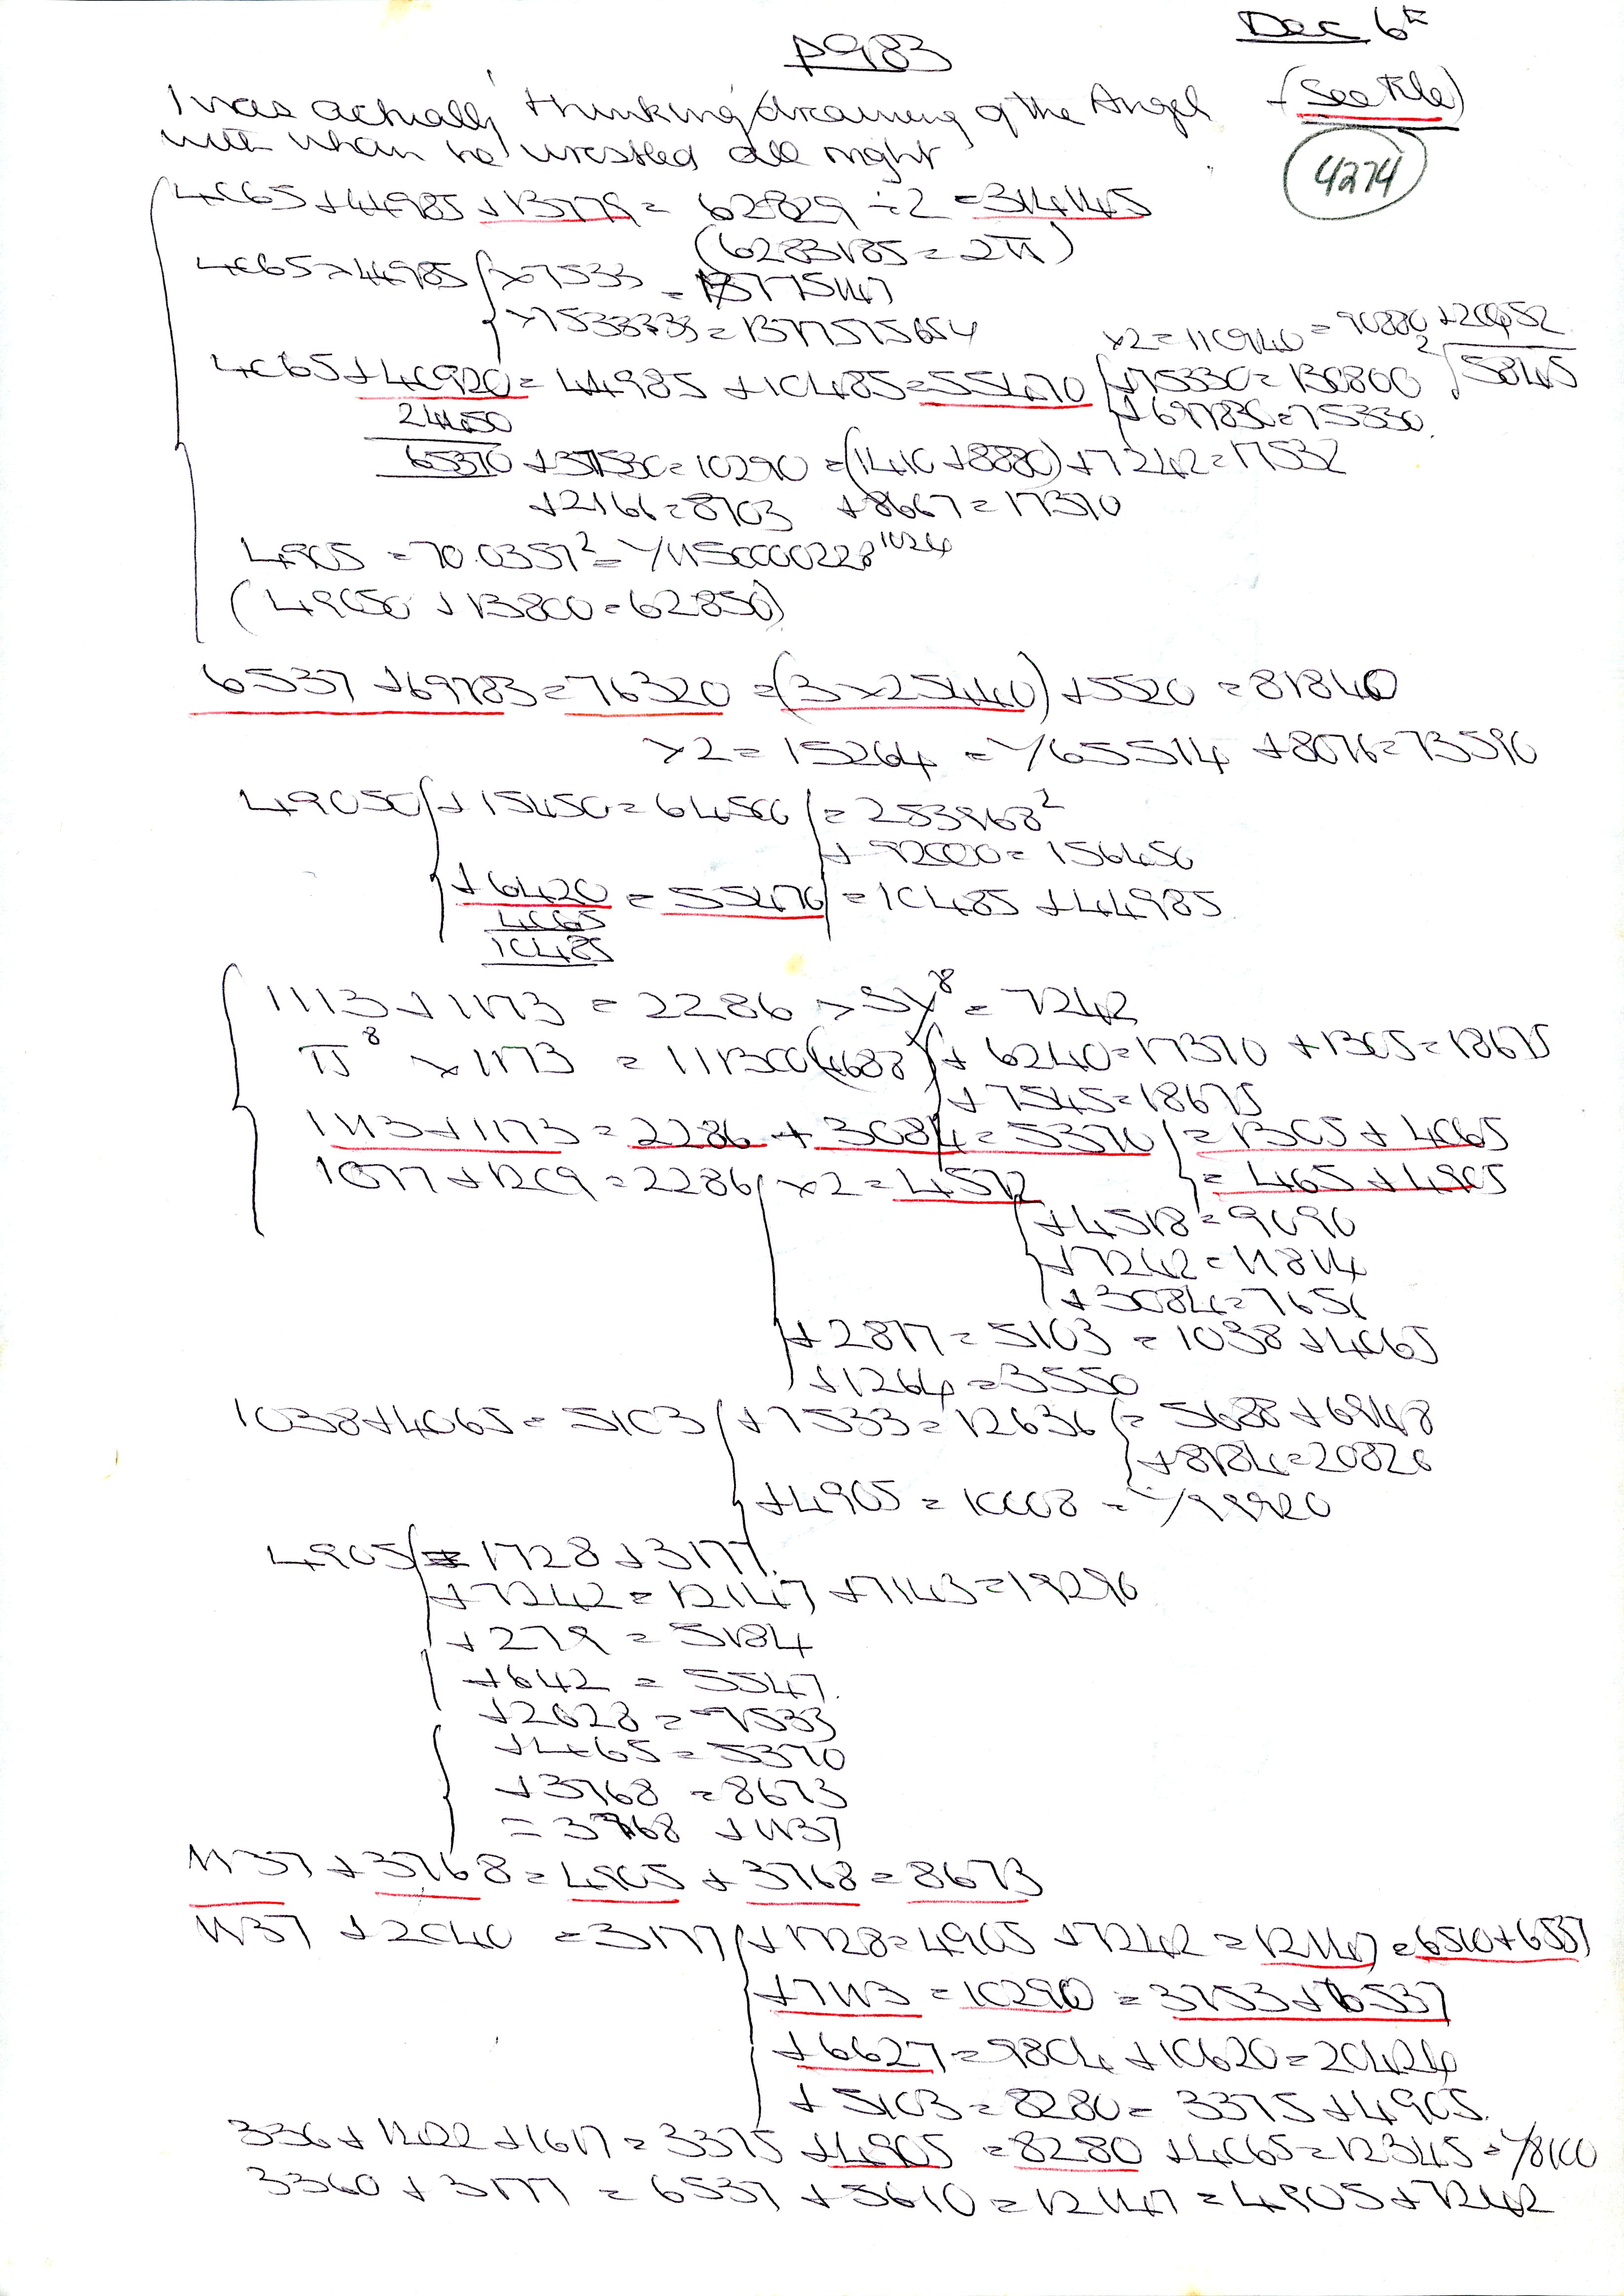 P983
Dec 6th
I was actually thinking/dreaming of the Angel (Seattle)
with whom he wrestled all night
4274
4065 + 44985 + 13779 = 62829 ÷ 2 = 314145
(6283185 = 2π)
4065 × 44985 × 7533 = 13775147
× 7533333 = 1377575654
× 2 = 110940 = 90880 + 20060
4065 + 40920 = 44985 + 10485 = 55470 + 75330 = 130800
+ 697830 = 75330
24450
65370 + 37530 = 10290 = (1410 + 8880) + 7242 = 17532
+ 2166 = 8703 + 8667 = 17370
4905 = 70.0357² = 1.0150000228
(49050 + 13800 = 62850)
6537 + 69783 = 76320 = (3 × 25440) + 5520 = 81840
× 2 = 15264 = 1/65514 + 8076 = 73590
49050 + 15450 = 64500 = 253968²
+ 92000 = 156450
+ 6420 = 55470 = 10485 + 44985
4065
10485
1113 + 1173 = 2286 = 7242
π⁸ × 1173 = 11130 + 6240 = 17370 + 1305 = 18675
+ 7545 = 18675
1113 + 1173 = 2286 + 3084 = 5370 = 1305 + 4065
1077 + 1209 = 2286 × 2 = 4572 = 465 + 4905
+ 4518 = 9090
+ 7242 = 11814
+ 3084 = 7656
+ 2817 = 5103 = 1038 + 4065
+ 1264 = 3550
1038 + 4065 = 5103 + 7533 = 12636 = 5688 + 6948
+ 8184 = 20820
+ 4905 = 10008 = 1/99920
4905 = 1728 + 3177
+ 7242 = 12147 + 7143 = 19290
+ 279 = 5184
+ 642 = 5547
+ 2628 = 7533
+ 465 = 5370
+ 3768 = 8673
= 3768 + 1137
1137 + 3768 = 4905 + 3768 = 8673
1137 + 2040 = 3177 + 1728 = 4905 + 7242 = 12147 = 5610 + 6537
+ 7113 = 10290 = 3753 + 6537
+ 6627 = 9804 + 10620 = 20424
+ 5103 = 8280 = 3375 + 4905
336 + 1422 + 1617 = 3375 + 4905 = 8280 + 4065 = 12345 = 1/8100
3360 + 3177 = 6537 + 5610 = 12147 = 4905 + 7242